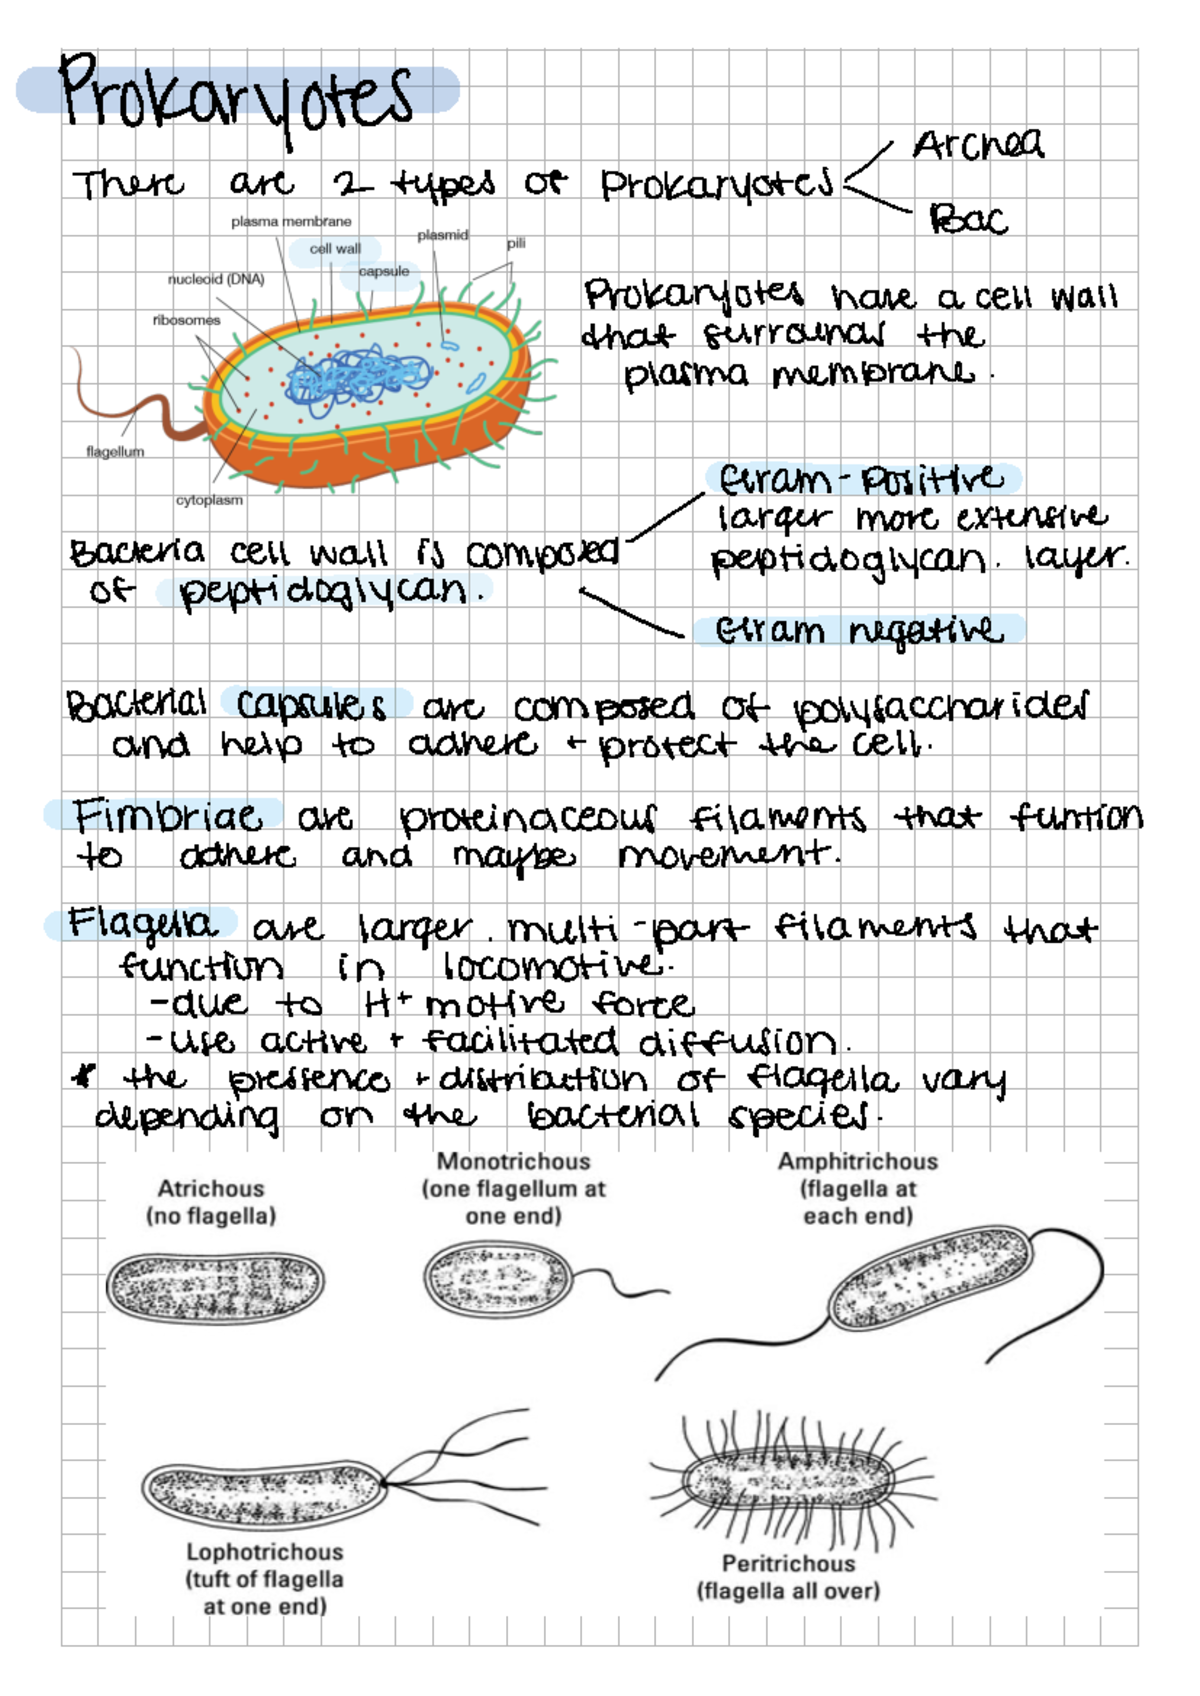 Prokaryotes
There are 2 types of Prokaryotes
Archea
Bac
plasma membrane
cell wall
plasmid
pili
capsule
nucleoid (DNA)
ribosomes
flagellum
cytoplasm
Prokaryotes have a cell wall
that surrounds the
plasma membrane.
Bacteria cell wall is composed
of peptidoglycan.
Gram-Positive
larger more extensive
peptidoglycan. layer.
Gram negative
Bacterial capsules are composed of polysaccharides
and help to adhere + protect the cell.
Fimbriae are proteinaceous filaments that funtion
to adhere and maybe movement.
Flagella are larger. multi-part filaments that
function in locomotive.
-due to H+ motive force
-use active + facilitated diffusion.
* the pressence + distribution of flagella vary
depending on the bacterial species.
Atrichous
(no flagella)
Monotrichous
(one flagellum at
one end)
Amphitrichous
(flagella at
each end)
Lophotrichous
(tuft of flagella
at one end)
Peritrichous
(flagella all over)